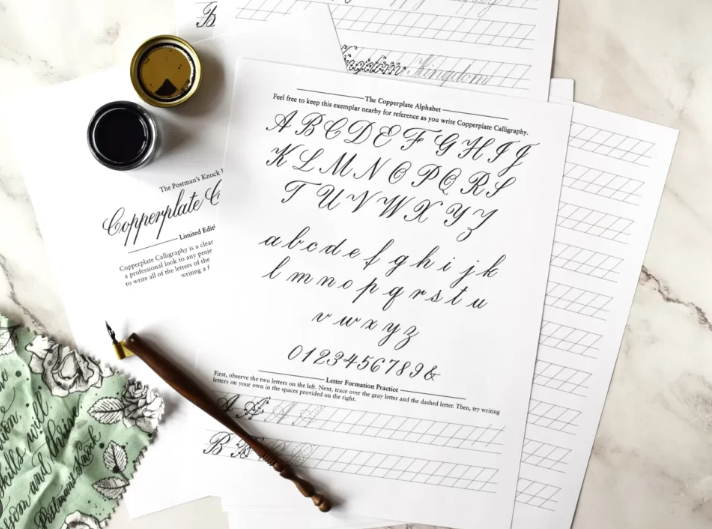 B
Kingdom
The Copperplate Alphabet
Feel free to keep this exemplar nearby for reference as you write Copperplate Calligraphy.
A B C D E F G H I J
K L M N O P Q R S
T U V W X Y Z
a b c d e f g h i j k
l m n o p q r s t u
v w x y z
0 1 2 3 4 5 6 7 8 9 &
Letter Formation Practice
First, observe the two letters on the left. Next, trace over the gray letter and the dashed letter. Then, try writing
letters on your own in the spaces provided on the right.
A A A
B B
The Postman's Knock
Copperplate C
Limited Editi
Copperplate Calligraphy is a clear
a professional look to any proje
to write all of the letters of the
writing a f
skills will
and